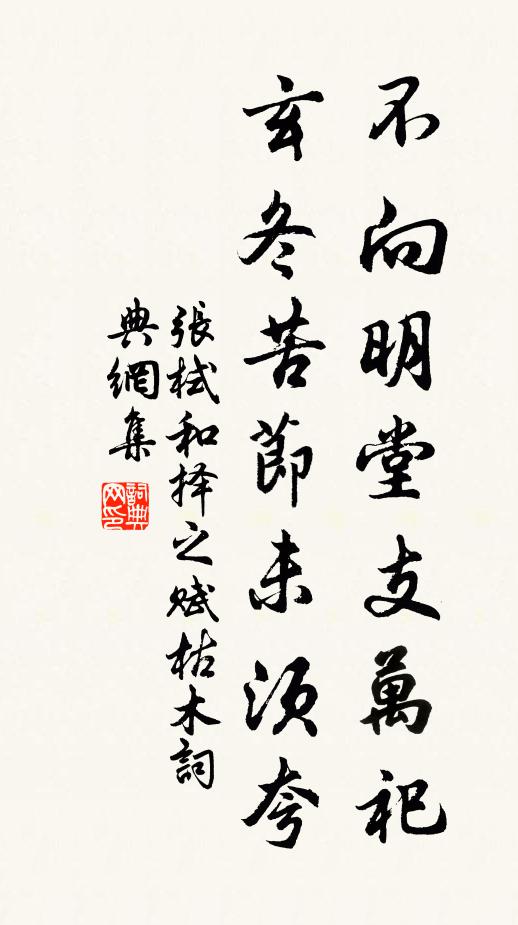 不向明堂支萬祀
玄冬苦節未須夸
張栻和择之赋枯木詞
典網集
詞典
网印